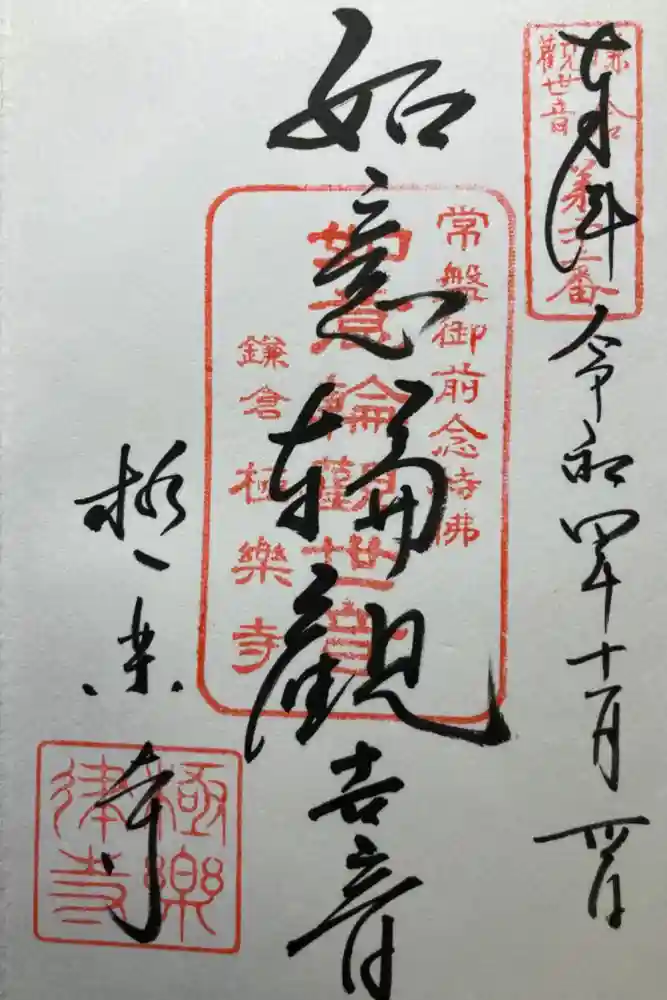 奉拝
令和四年十月
如意輪觀世音
極楽寺
鎌倉
觀世音
常盤御前念持佛
如意輪觀世音
鎌倉極樂寺
極樂
律寺